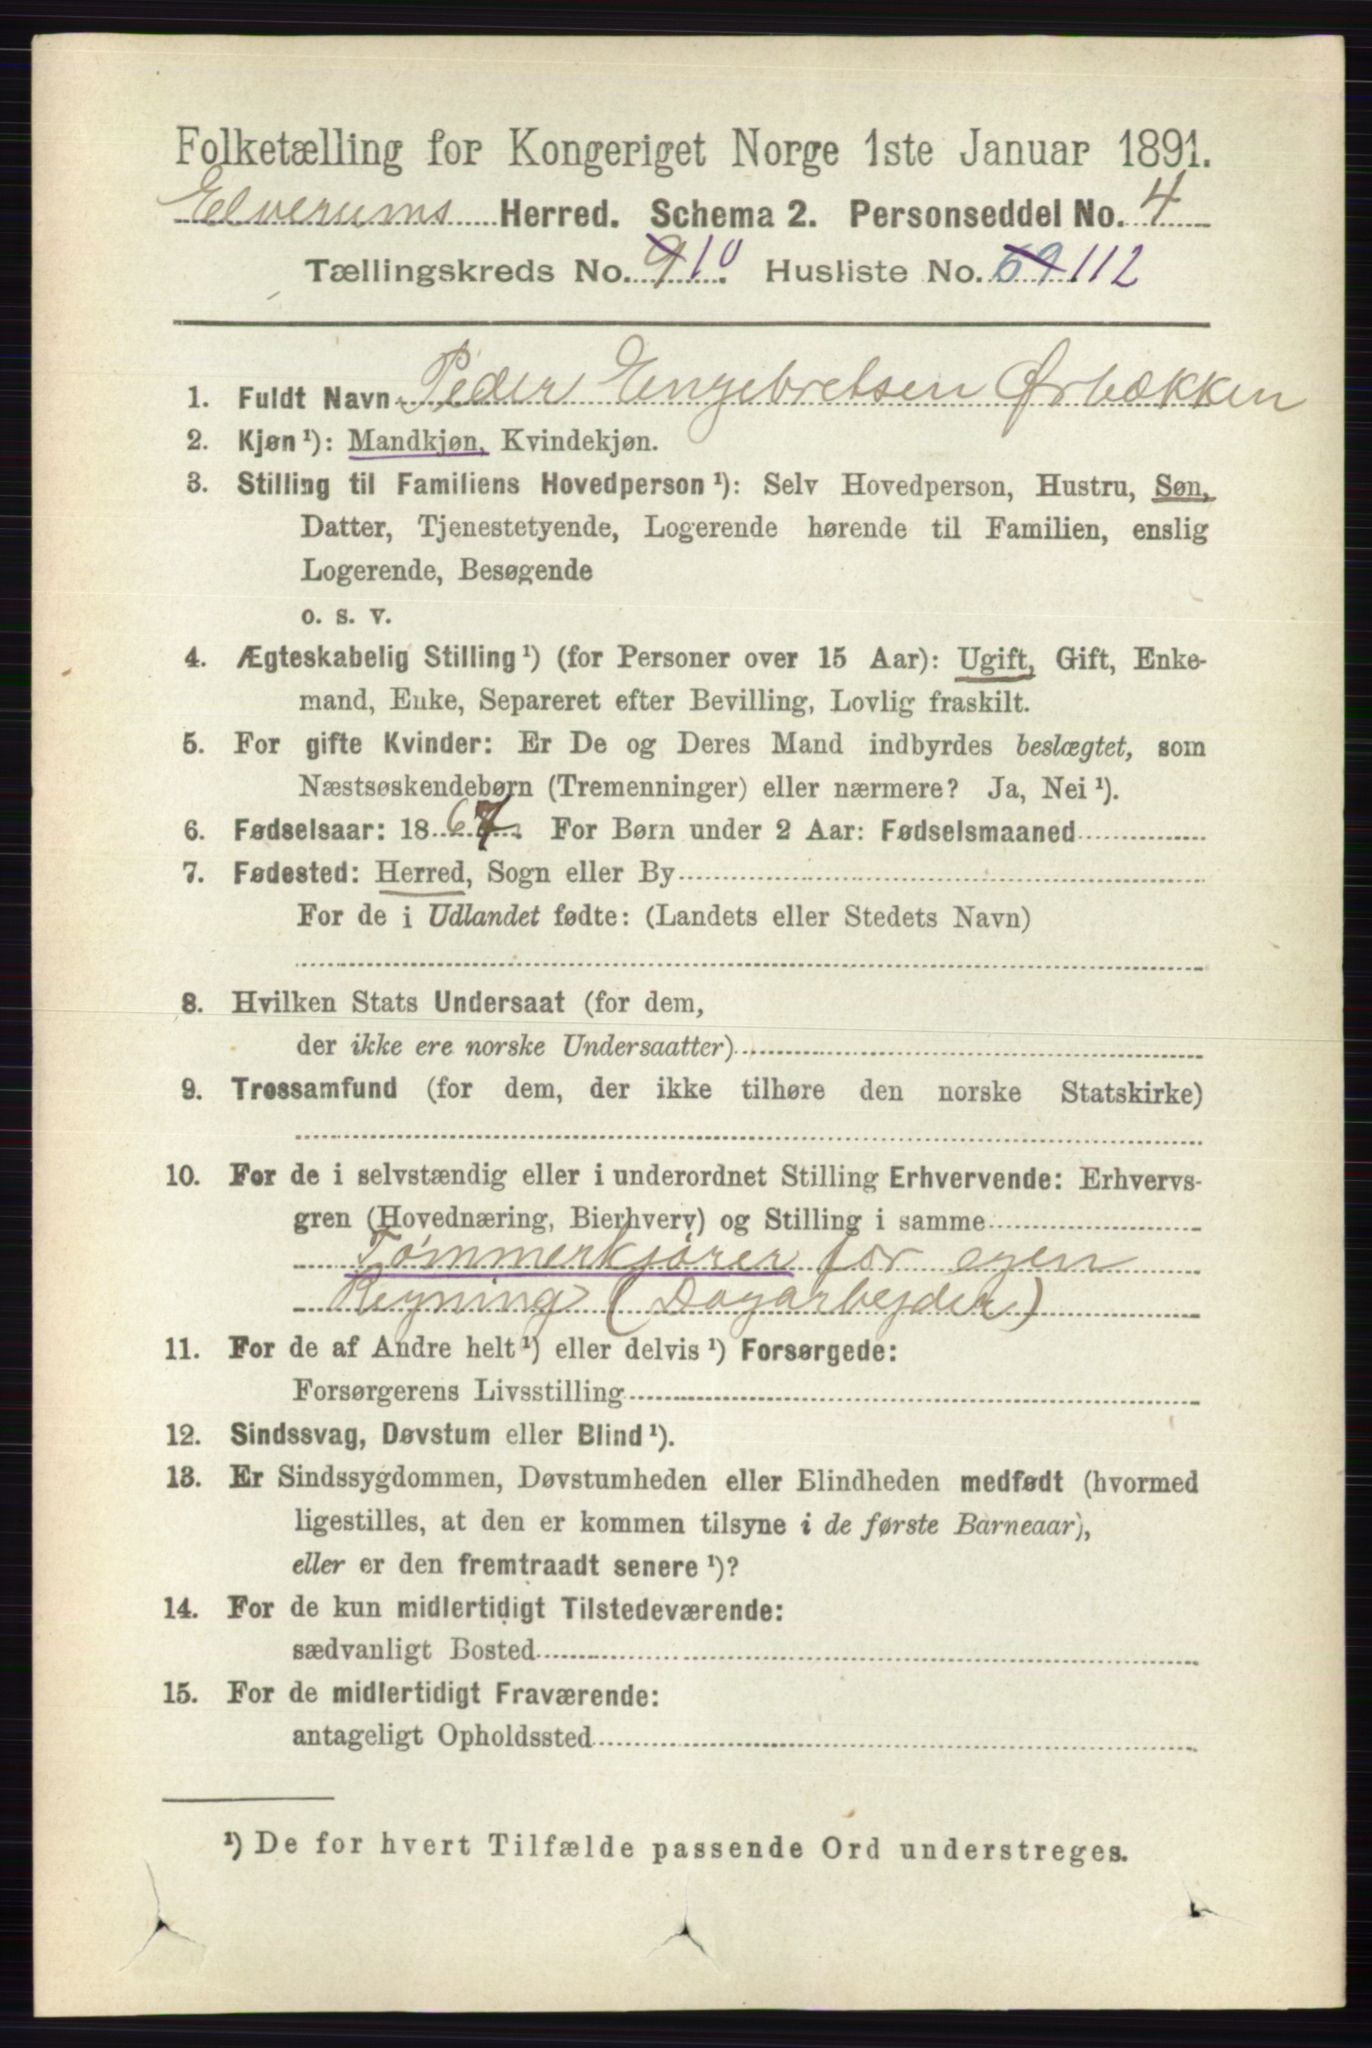 Folketælling for Kongeriget Norge 1ste Januar 1891.
Elverums Herred. Schema 2. Personseddel No. 4
Tællingskreds No. 9 10. Husliste No. 69 112
1. Fuldt Navn Peder Engebretsen Ørbækken
2. Kjøn ¹): Mandkjøn, Kvindekjøn.
3. Stilling til Familiens Hovedperson ¹): Selv Hovedperson, Hustru, Søn,
Datter, Tjenestetyende, Logerende hørende til Familien, enslig
Logerende, Besøgende
o. s. v.
4. Ægteskabelig Stilling ¹) (for Personer over 15 Aar): Ugift, Gift, Enke-
mand, Enke, Separeret efter Bevilling, Lovlig fraskilt.
5. For gifte Kvinder: Er De og Deres Mand indbyrdes beslægtet, som
Næstsøskendebørn (Tremenninger) eller nærmere? Ja, Nei ¹).
6. Fødselsaar: 1867. For Børn under 2 Aar: Fødselsmaaned
7. Fødested: Herred, Sogn eller By
For de i Udlandet fødte: (Landets eller Stedets Navn)
8. Hvilken Stats Undersaat (for dem,
der ikke ere norske Undersaatter)
9. Trossamfund (for dem, der ikke tilhøre den norske Statskirke)
10. For de i selvstændig eller i underordnet Stilling Erhvervende: Erhvervs-
gren (Hovednæring, Bierhverv) og Stilling i samme
Tømmerkjører for egen
Regning (Dagarbejder)
11. For de af Andre helt ¹) eller delvis ¹) Forsørgede:
Forsørgerens Livsstilling
12. Sindssvag, Døvstum eller Blind ¹).
13. Er Sindssygdommen, Døvstumheden eller Blindheden medfødt (hvormed
ligestilles, at den er kommen tilsyne i de første Barneaar),
eller er den fremtraadt senere ¹)?
14. For de kun midlertidigt Tilstedeværende:
sædvanligt Bosted
15. For de midlertidigt Fraværende:
antageligt Opholdssted
¹) De for hvert Tilfælde passende Ord understreges.